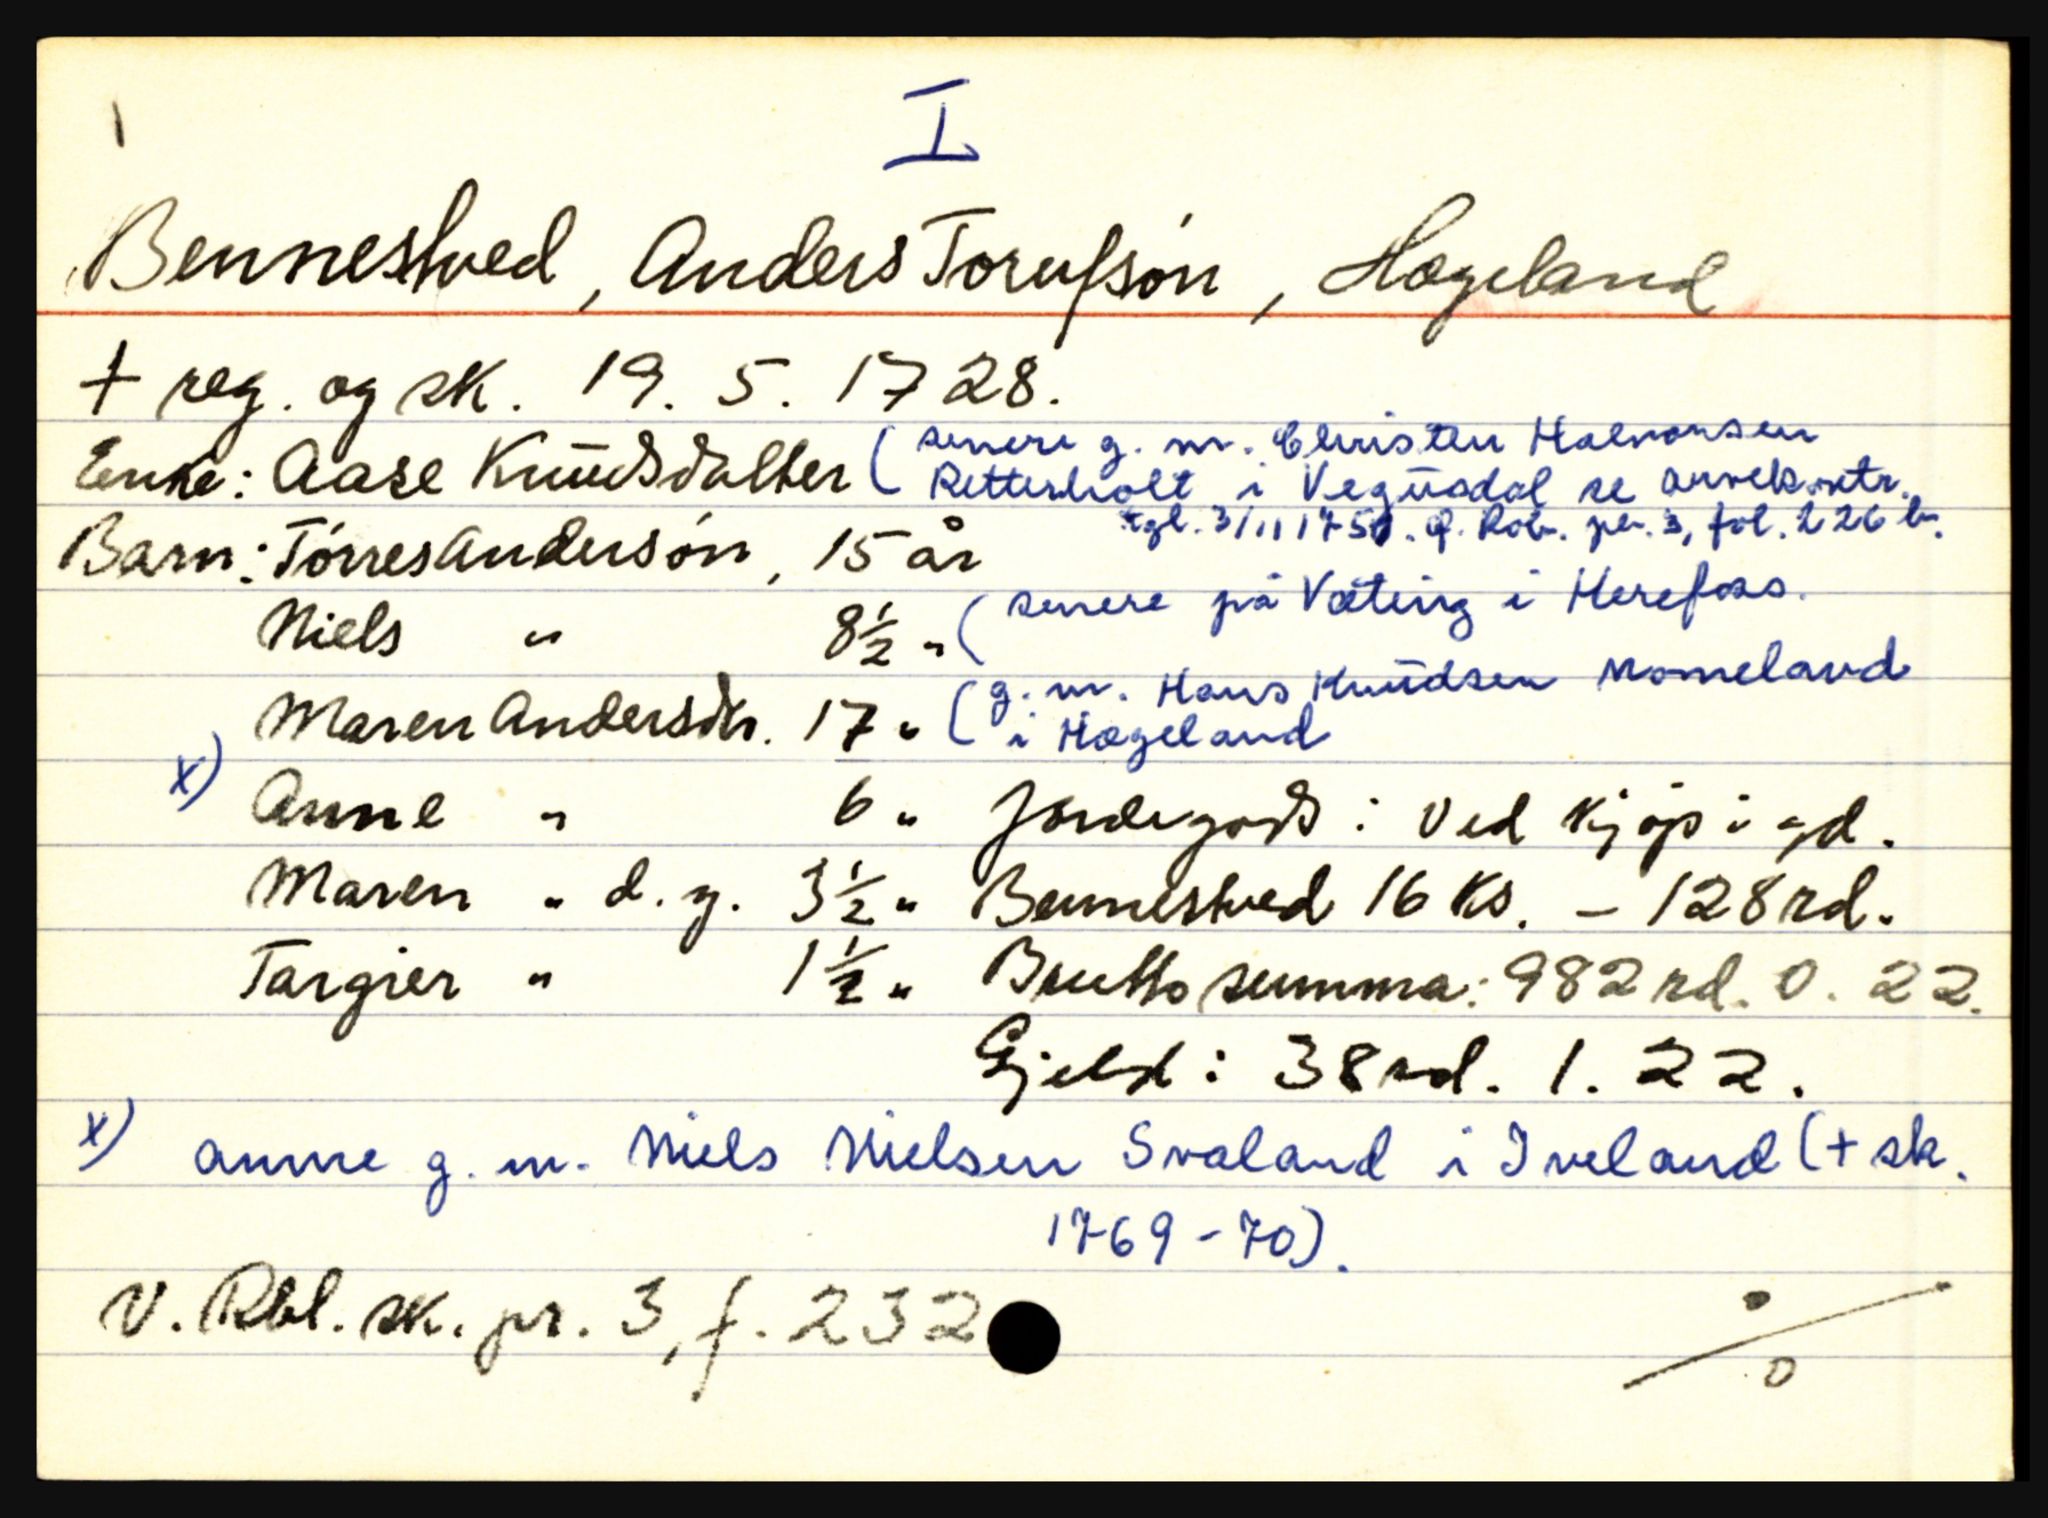 I
Bennestved, Anders Torufsøn, Hægeland
+ reg. og sk. 19. 5. 1728.
Enke: Aase Knudsdatter (senere g. m. Christen Halvorsen
Retterholt i Vegusdal se arvekontr.
tgl. 3/11 1751. q. Rob. pr. 3, fol. 226 b.
Barn: Törres Andersøn, 15 år
Niels " 8½ " (senere på Væting i Herefoss.
Maren Andersdtr. 17 " (g. m. Hans Knudsen Momeland
i Hægeland
x) Anne " 6 " Jordegods: Ved kjøp i gd.
Maren " d. y. 3½ " Bennestved 16 Ks. – 128 rd.
Targier " 1½ " Brutto summa: 982 rd. 0. 22.
Gjeld: 38 rd. 1. 22.
x) anne g. m. Niels Nielsen Svaland i Iveland (+ sk.
1769-70).
V. Rbl. sk. pr. 3, f. 232